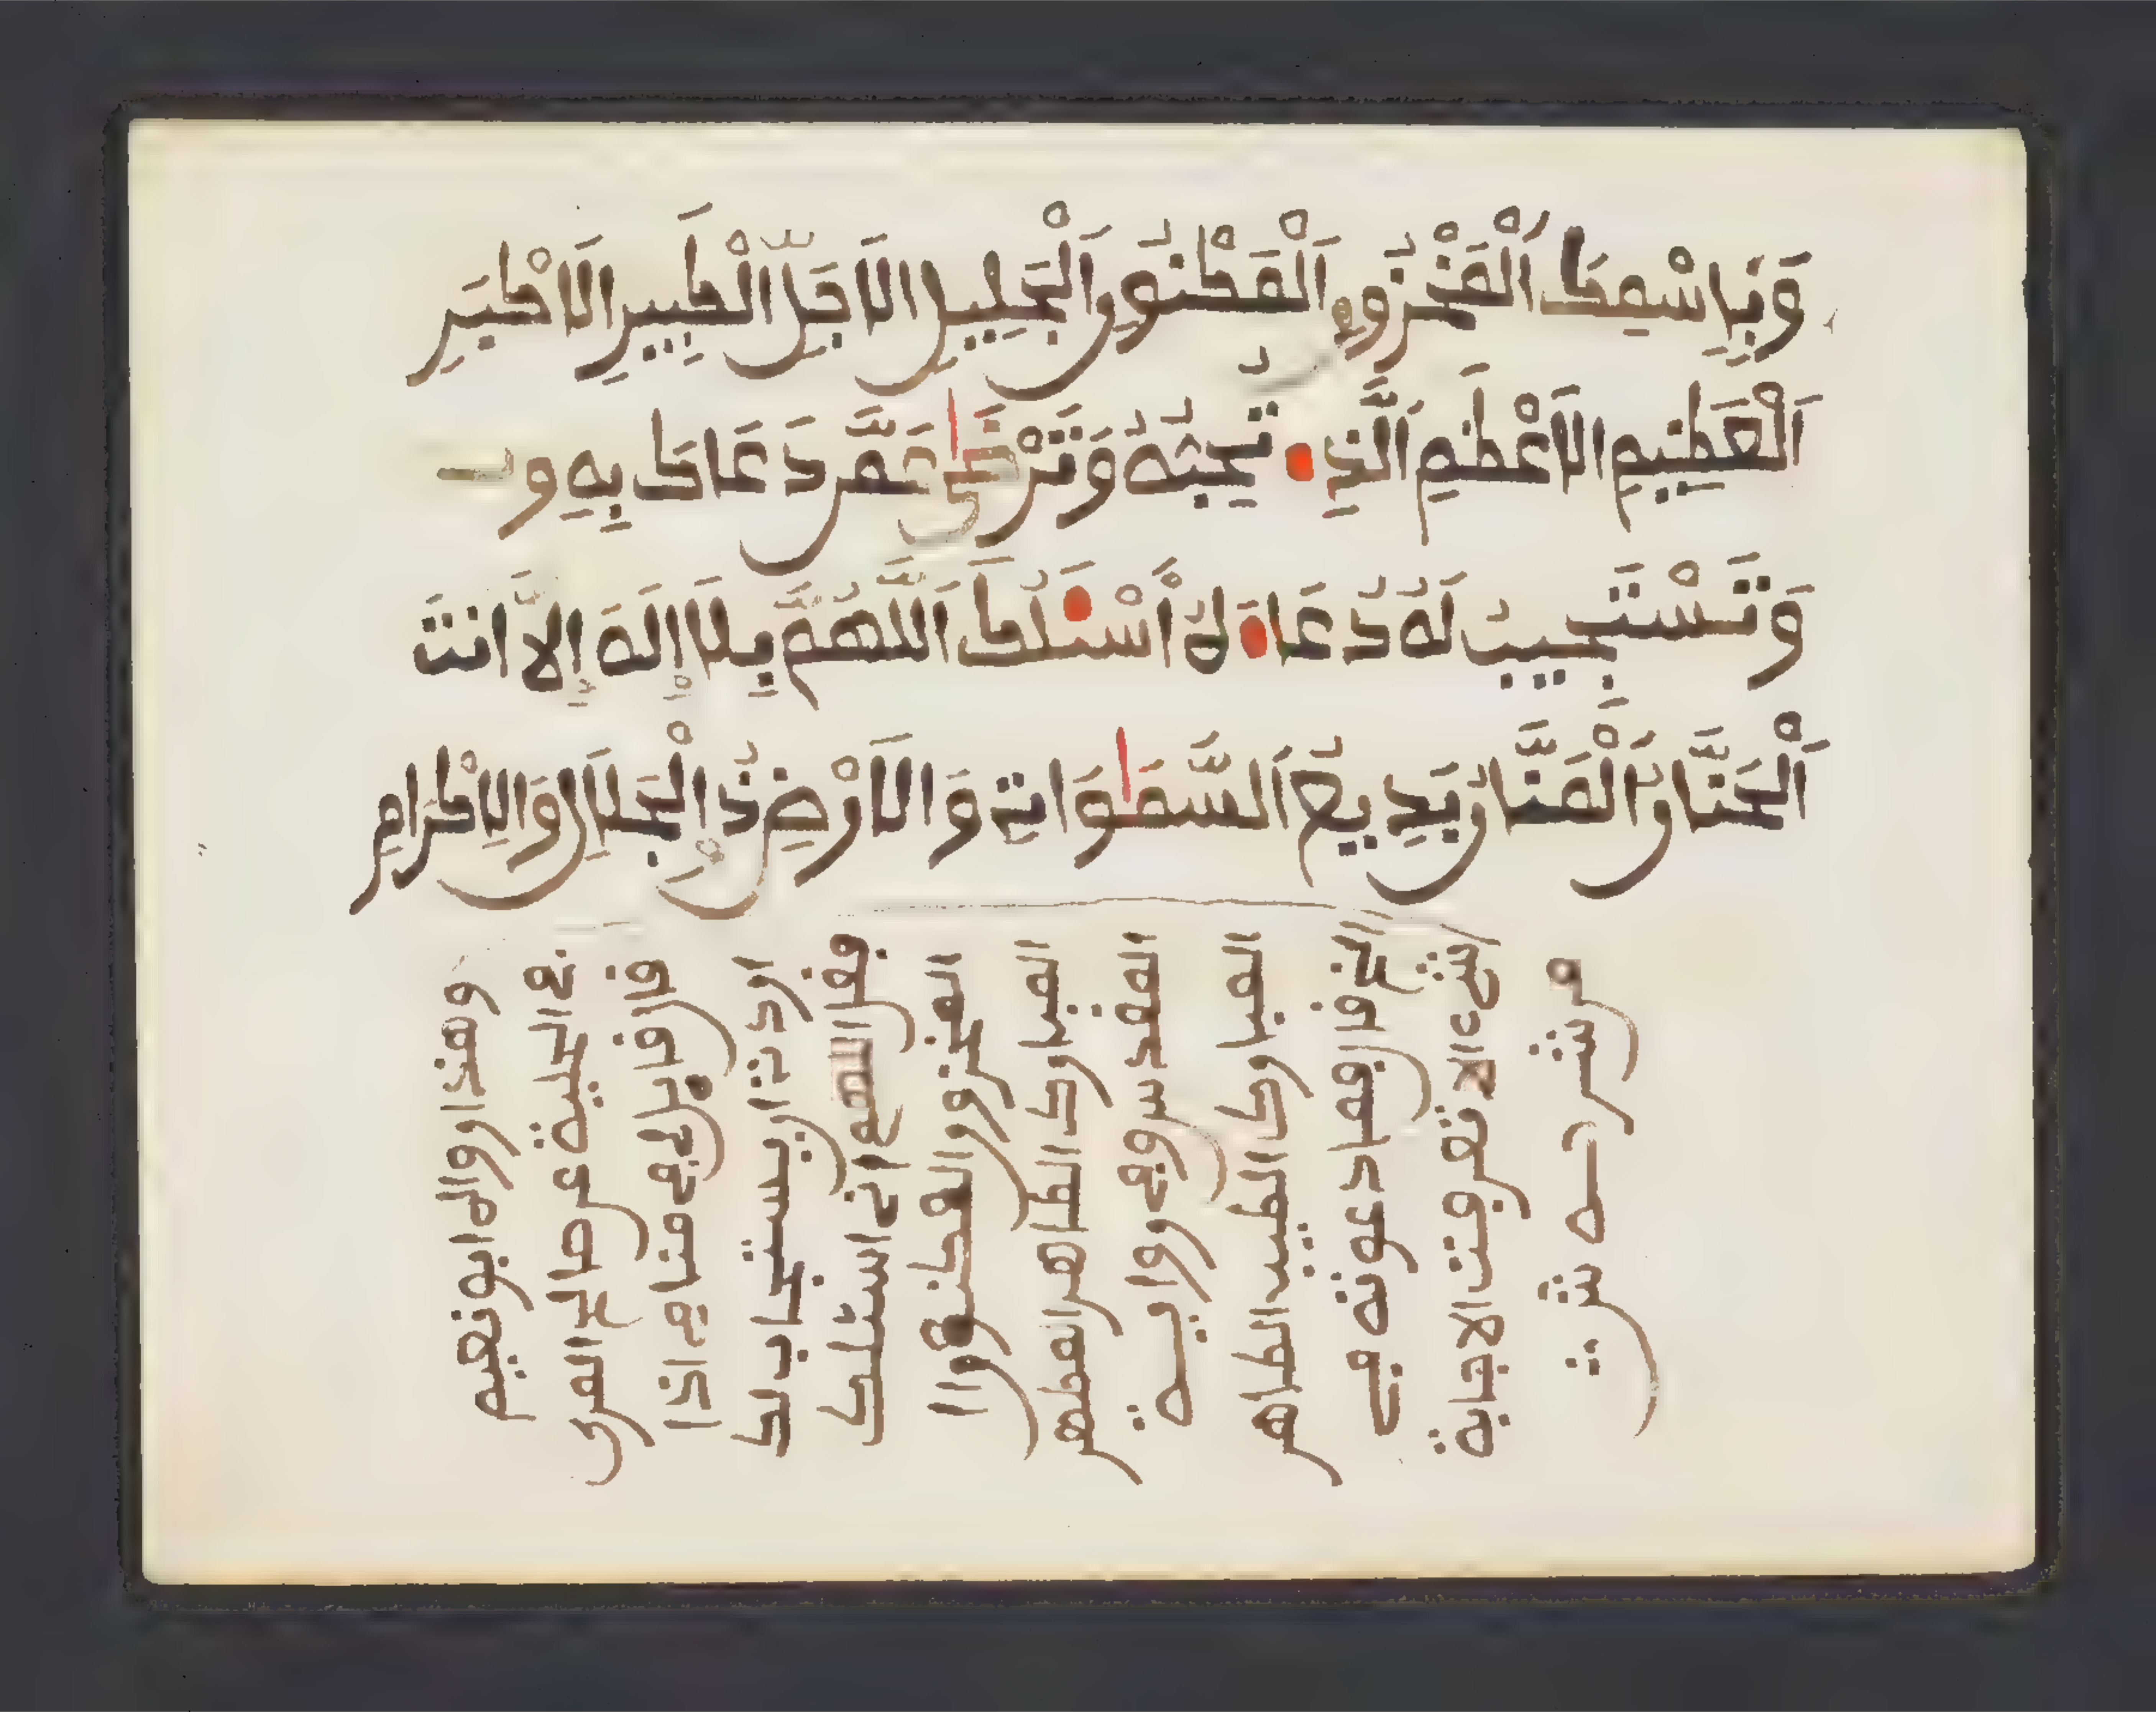 وَبِاسْمِكَ اَلْمَخْزُونِ اَلْمَكْنُونِ اَلْجَلِيلِ الَاجَلِّ الْكَبِيرِ الَاكْبَرِ
اَلْعَظِيمِ الَاعْظَمِ اَلَّذِے تُحِبُّهُ وَتَرْضَىٰ عَمَّن دَعَاكَ بِهِ و
وَتَسْتَجِيبُ لَهُ دُعَاءَهُ أَسْـَٔلُكَ اَللَّهُمَّ بِلَا إِلَهَ إِلَّا انتَ
اَلْحَنَّانُ اَلْمَنَّانُ بَدِيعُ اَلسَّمَٰوَاتِ وَالَارْضِ ذُو الْجَلَالِ وَالِاكْرَامِ
وهذا رواه ابو نعيم
في الحلية عن صالح المرى
قال قال لي في منامي اذا
اردت ان يستجاب لك
فقل اللهم اني اسئلك
المخزون المكنون ا
المبارك الطاهر المطهر
المقدس وفي رواية
المبارك الطيب الطاهر
الخ قال فما دعوته في
شيء الا تعرفت الاجابة
من شرحه